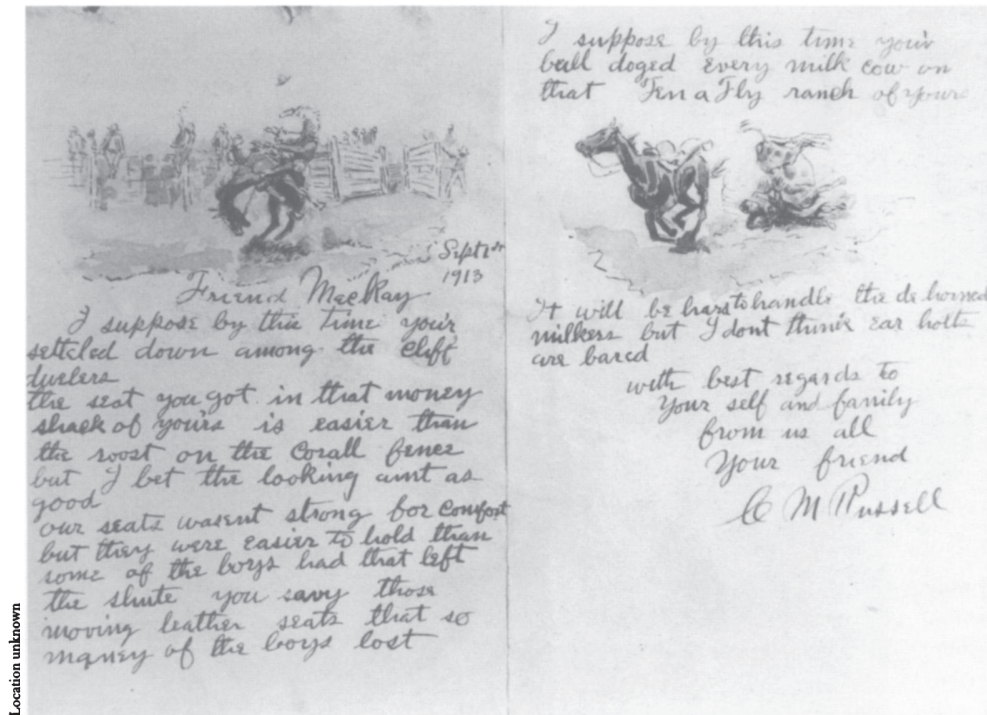 Sept 1st
1913
Friend MacKay
I suppose by this time your
settcled down among the cliff
dwelers
the seat you got in that money
shack of yours is easier than
the roost on the Corall fence
but I bet the looking aint as
good
our seats wasent strong for comfort
but they were easier to hold than
some of the boys had that left
the shute you savy those
moving leather seats that so
maney of the boys lost
I suppose by this time your
bull doged every milk cow on
that Fen a Fly ranch of yours
It will be hard to handle the de horned
milkers but I dont think ear holts
are bared
with best regards to
Your self and family
from us all
Your friend
C M Russell
Location unknown